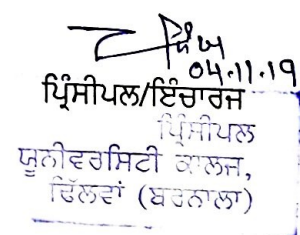 04.11.19
ਪ੍ਰਿੰਸੀਪਲ/ਇੰਚਾਰਜ
ਪ੍ਰਿੰਸੀਪਲ
ਯੂਨੀਵਰਸਿਟੀ ਕਾਲਜ,
ਢਿੱਲਵਾਂ (ਬਰਨਾਲਾ)